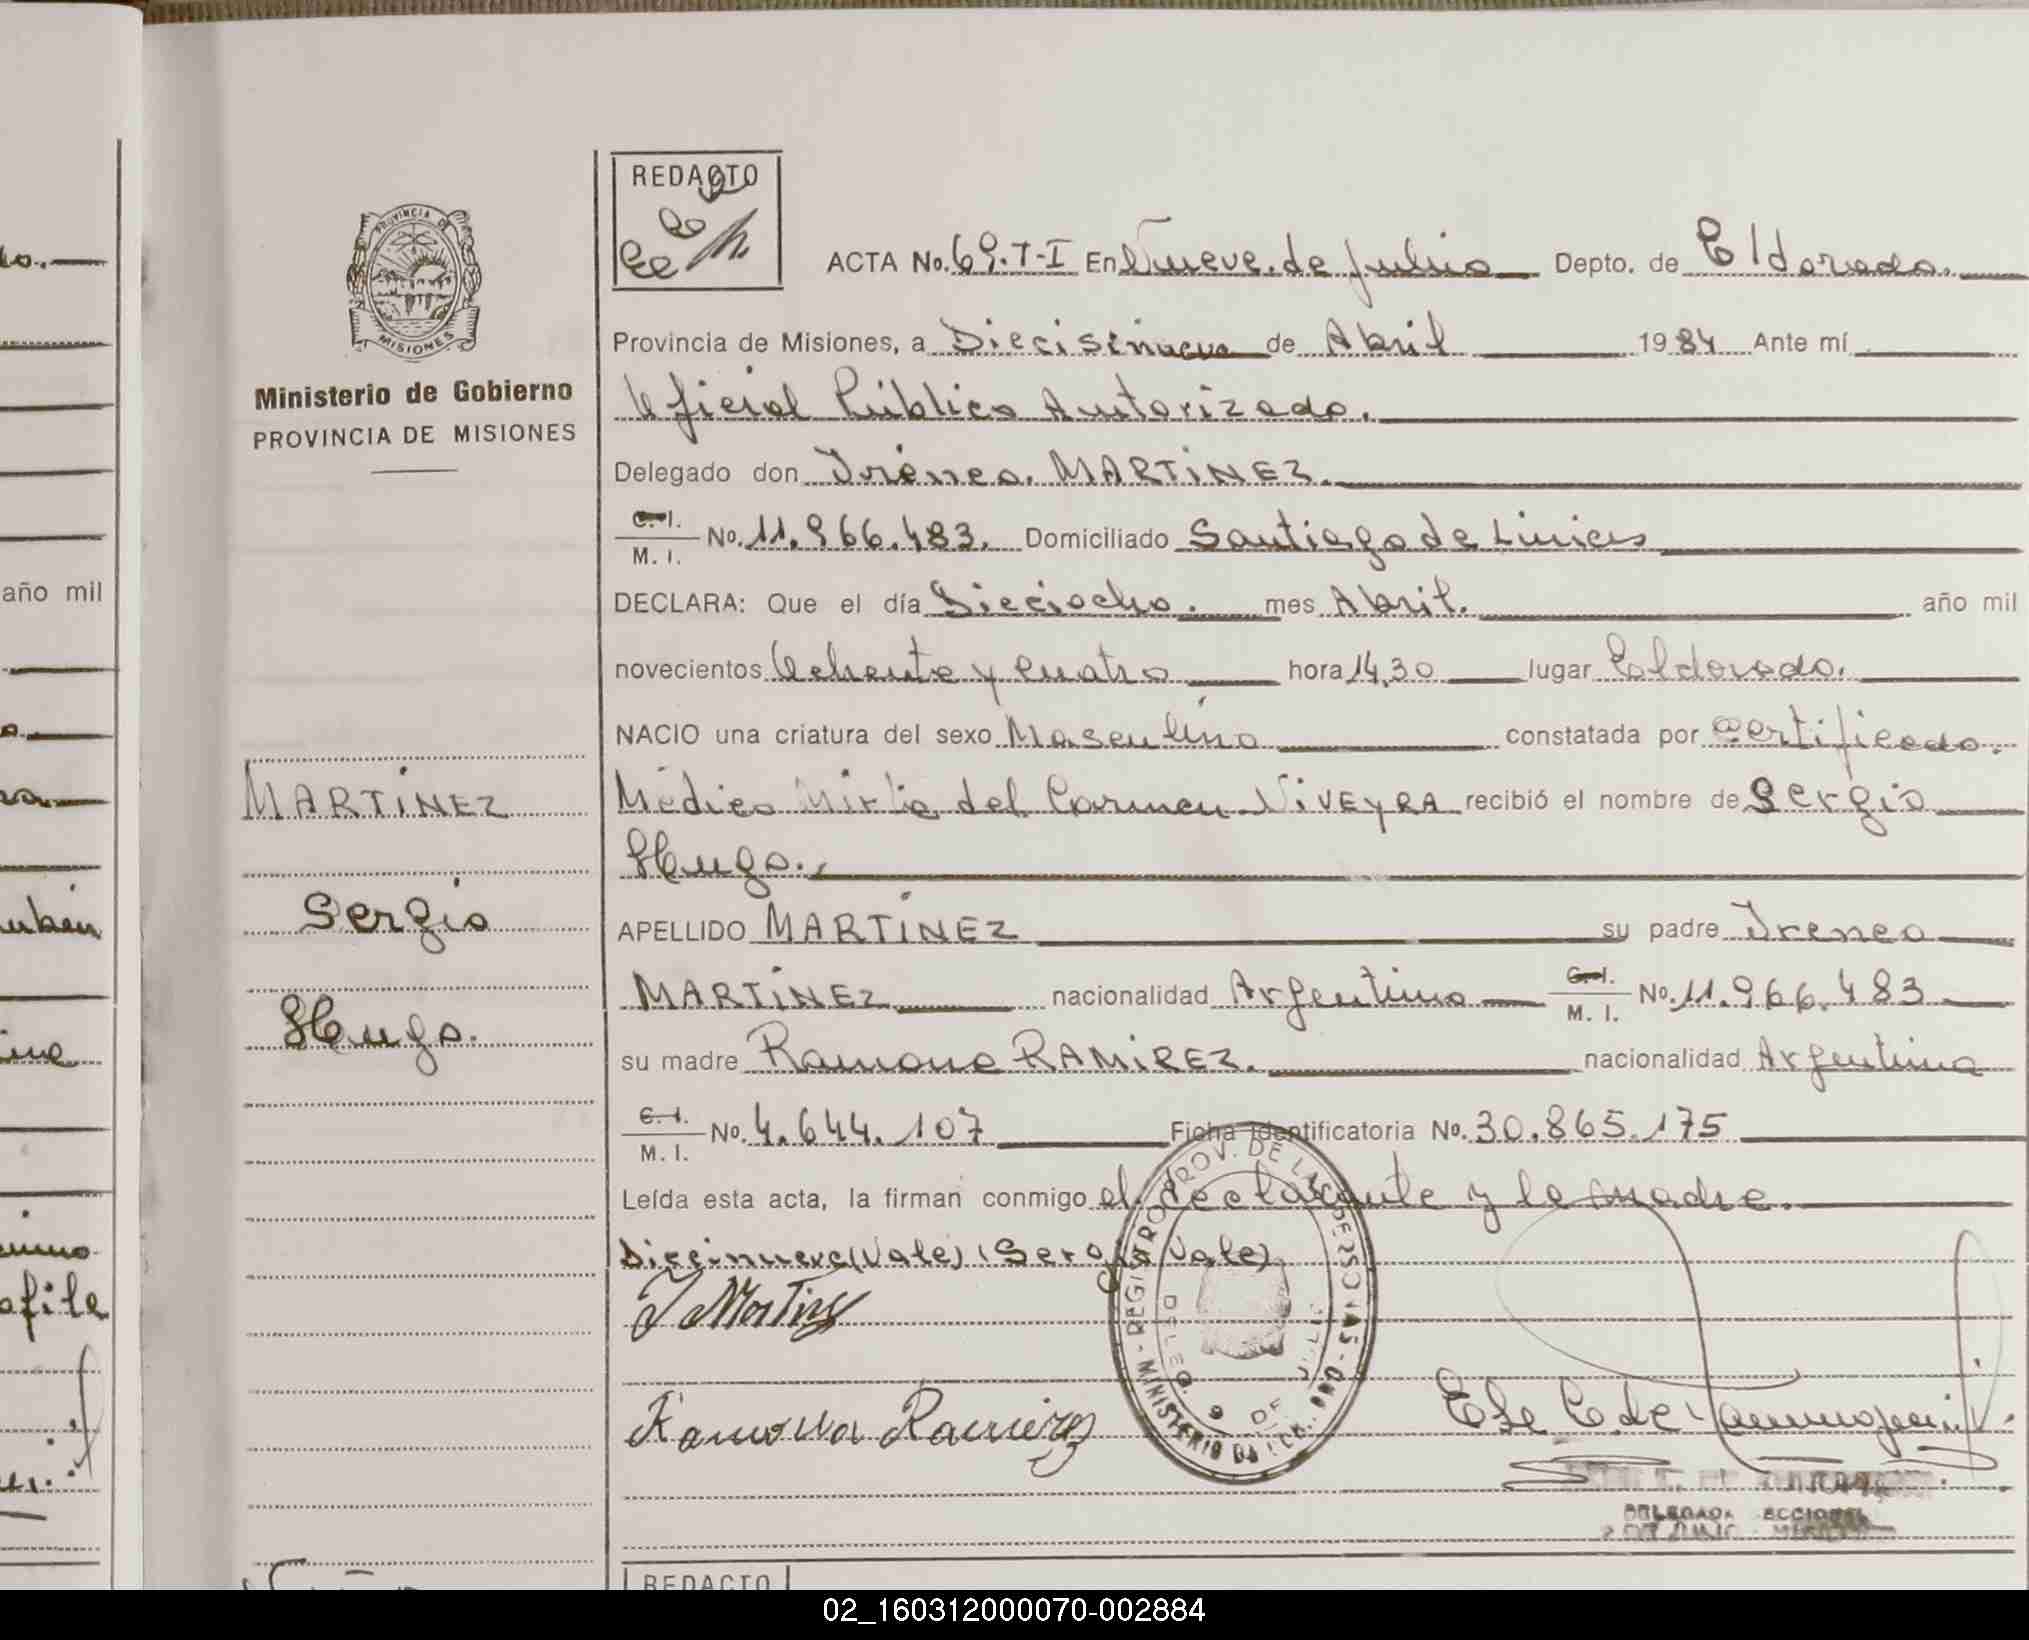 REDACTO
ACTA No. 69. T-I En Nueve de Julio Depto. de Eldorado.
PROVINCIA DE
MISIONES
Provincia de Misiones, a Diecisinueve de Abril 1984 Ante mí
Ministerio de Gobierno
Oficial Público Autorizado.
PROVINCIA DE MISIONES
Delegado don Iréneo. MARTÍNEZ.
C. I.
M. I. No. 11.966.483. Domiciliado Santiago de Liniers
DECLARA: Que el día Dieciocho. mes Abril. año mil
novecientos Ochenta y Cuatro hora 14,30 lugar Eldorado.
NACIO una criatura del sexo Masculino constatada por Certificado.
MARTÍNEZ
Médico Mirta del Carmen VIVEYRA recibió el nombre de Sergio
Hugo.
Sergio
APELLIDO MARTÍNEZ su padre Ireneo
MARTÍNEZ nacionalidad Argentino C. I. M. I. No. 11.966.483
Hugo.
su madre Ramona RAMÍREZ. nacionalidad Argentina
C. I.
M. I. No. 4.644.107 Ficha Identificatoria No. 30.865.175
Leída esta acta, la firman conmigo el declarante y la madre.
Diecinueve (Vale) (Sergio Vale)
I Martinez
Ramona Ramirez
REGISTRO PROV. DE LAS PERSONAS
DELEG. 9 DE JULIO
REDACTO
año mil
02_160312000070-002884